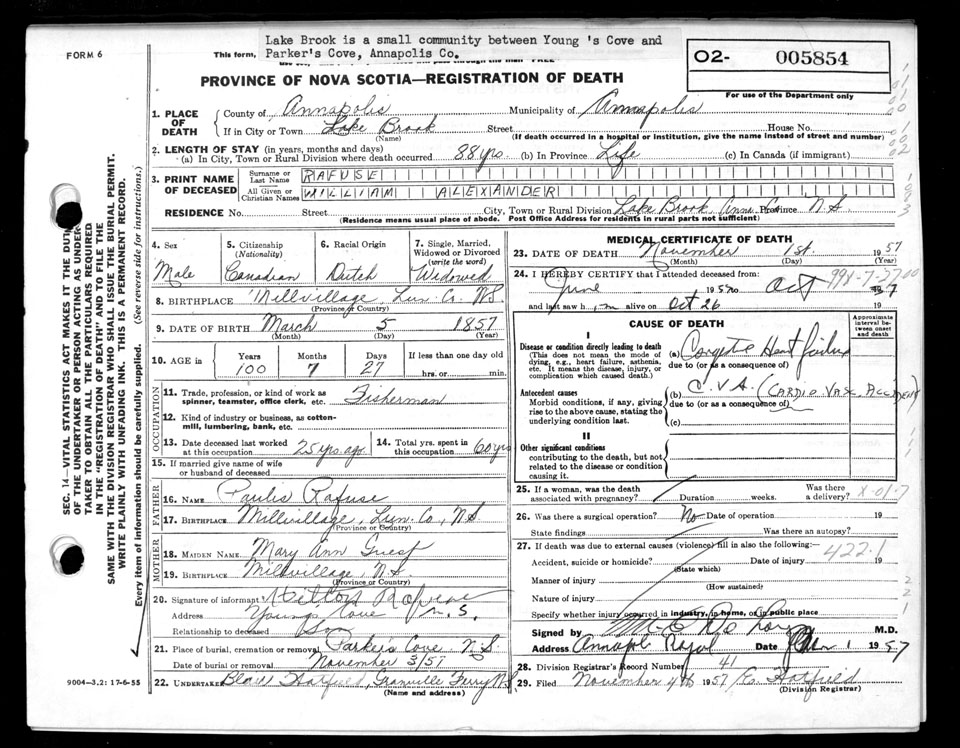 FORM 6
Lake Brook is a small community between Young 's Cove and
This form, Parker's Cove, Annapolis Co.
O2- 005854
PROVINCE OF NOVA SCOTIA—REGISTRATION OF DEATH
For use of the Department only
1. PLACE OF DEATH { County of Annapolis Municipality of Annapolis
If in City or Town Lake Brook Street House No.
(Name) (If death occurred in a hospital or institution, give the name instead of street and number)
2. LENGTH OF STAY (in years, months and days)
(a) In City, Town or Rural Division where death occurred 88 yrs. (b) In Province Life (c) In Canada (if immigrant)
3. PRINT NAME OF DECEASED { Surname or Last Name RAFUSE
All Given or Christian Names WILLIAM ALEXANDER
RESIDENCE No. Street City, Town or Rural Division Lake Brook, Anna. Co. Province N.S.
(Residence means usual place of abode. Post Office Address for residents in rural parts not sufficient)
4. Sex Male
5. Citizenship (Nationality) Canadian
6. Racial Origin Dutch
7. Single, Married, Widowed or Divorced (write the word) Widowed
8. BIRTHPLACE Millvillage, Lun. Co. N.S.
(Province or Country)
9. DATE OF BIRTH March 5 1857
(Month) (Day) (Year)
10. AGE in Years 100 Months 7 Days 27 If less than one day old hrs. or min.
OCCUPATION
11. Trade, profession, or kind of work as spinner, teamster, office clerk, etc. Fisherman
12. Kind of industry or business, as cotton-mill, lumbering, bank, etc.
13. Date deceased last worked at this occupation 25 yrs. ago.
14. Total yrs. spent in this occupation 60 yrs
15. If married give name of wife or husband of deceased
FATHER
16. NAME Paulis Rafuse
17. BIRTHPLACE Millvillage, Lun. Co, N.S.
(Province or Country)
MOTHER
18. MAIDEN NAME Mary Ann
19. BIRTHPLACE Millvillage, N.S.
(Province or Country)
20. Signature of informant
Address Young's Cove N.S.
Relationship to deceased Son
21. Place of burial, cremation or removal Parker's Cove N.S.
Date of burial or removal November 3/57
22. UNDERTAKER Hatfield, Granville Ferry N.S.
(Name and address)
9004-3.2: 17-6-55
MEDICAL CERTIFICATE OF DEATH
23. DATE OF DEATH November 1st. 1957
(Month) (Day) (Year)
24. I HEREBY CERTIFY that I attended deceased from:
June 1957 to Oct 1957
and last saw him alive on Oct 26 19
CAUSE OF DEATH
Approximate interval between onset and death
I
Disease or condition directly leading to death
(This does not mean the mode of dying, e.g., heart failure, asthenia, etc. It means the disease, injury, or complication which caused death.)
(a) Heart failure
due to (or as a consequence of)
Antecedent causes
Morbid conditions, if any, giving rise to the above cause, stating the underlying condition last.
(b) C.V.A. (CARDIO VASC. ACCIDENT)
due to (or as a consequence of)
(c)
II
Other significant conditions
contributing to the death, but not related to the disease or condition causing it.
25. If a woman, was the death associated with pregnancy? Duration weeks. Was there a delivery?
26. Was there a surgical operation? No Date of operation 19
State findings Was there an autopsy?
27. If death was due to external causes (violence) fill in also the following: 422.1
Accident, suicide or homicide? Date of injury 19
(State which)
Manner of injury
(How sustained)
Nature of injury
Specify whether injury occurred in industry, in home, or in public place
Signed by M.D.
Address Annapolis Royal Date Nov 1 1957
28. Division Registrar's Record Number 41
29. Filed November 4th 1957 E. Hatfield
(Division Registrar)
SEC. 14—VITAL STATISTICS ACT MAKES IT THE DUTY
OF THE UNDERTAKER OR PERSON ACTING AS UNDER-
TAKER TO OBTAIN ALL THE PARTICULARS REQUIRED
IN THE "REGISTRATION OF DEATH" AND TO FILE THE
SAME WITH THE DIVISION REGISTRAR WHO SHALL ISSUE THE BURIAL PERMIT.
WRITE PLAINLY WITH UNFADING INK. THIS IS A PERMANENT RECORD.
Every item of information should be carefully supplied. (See reverse side for instructions.)